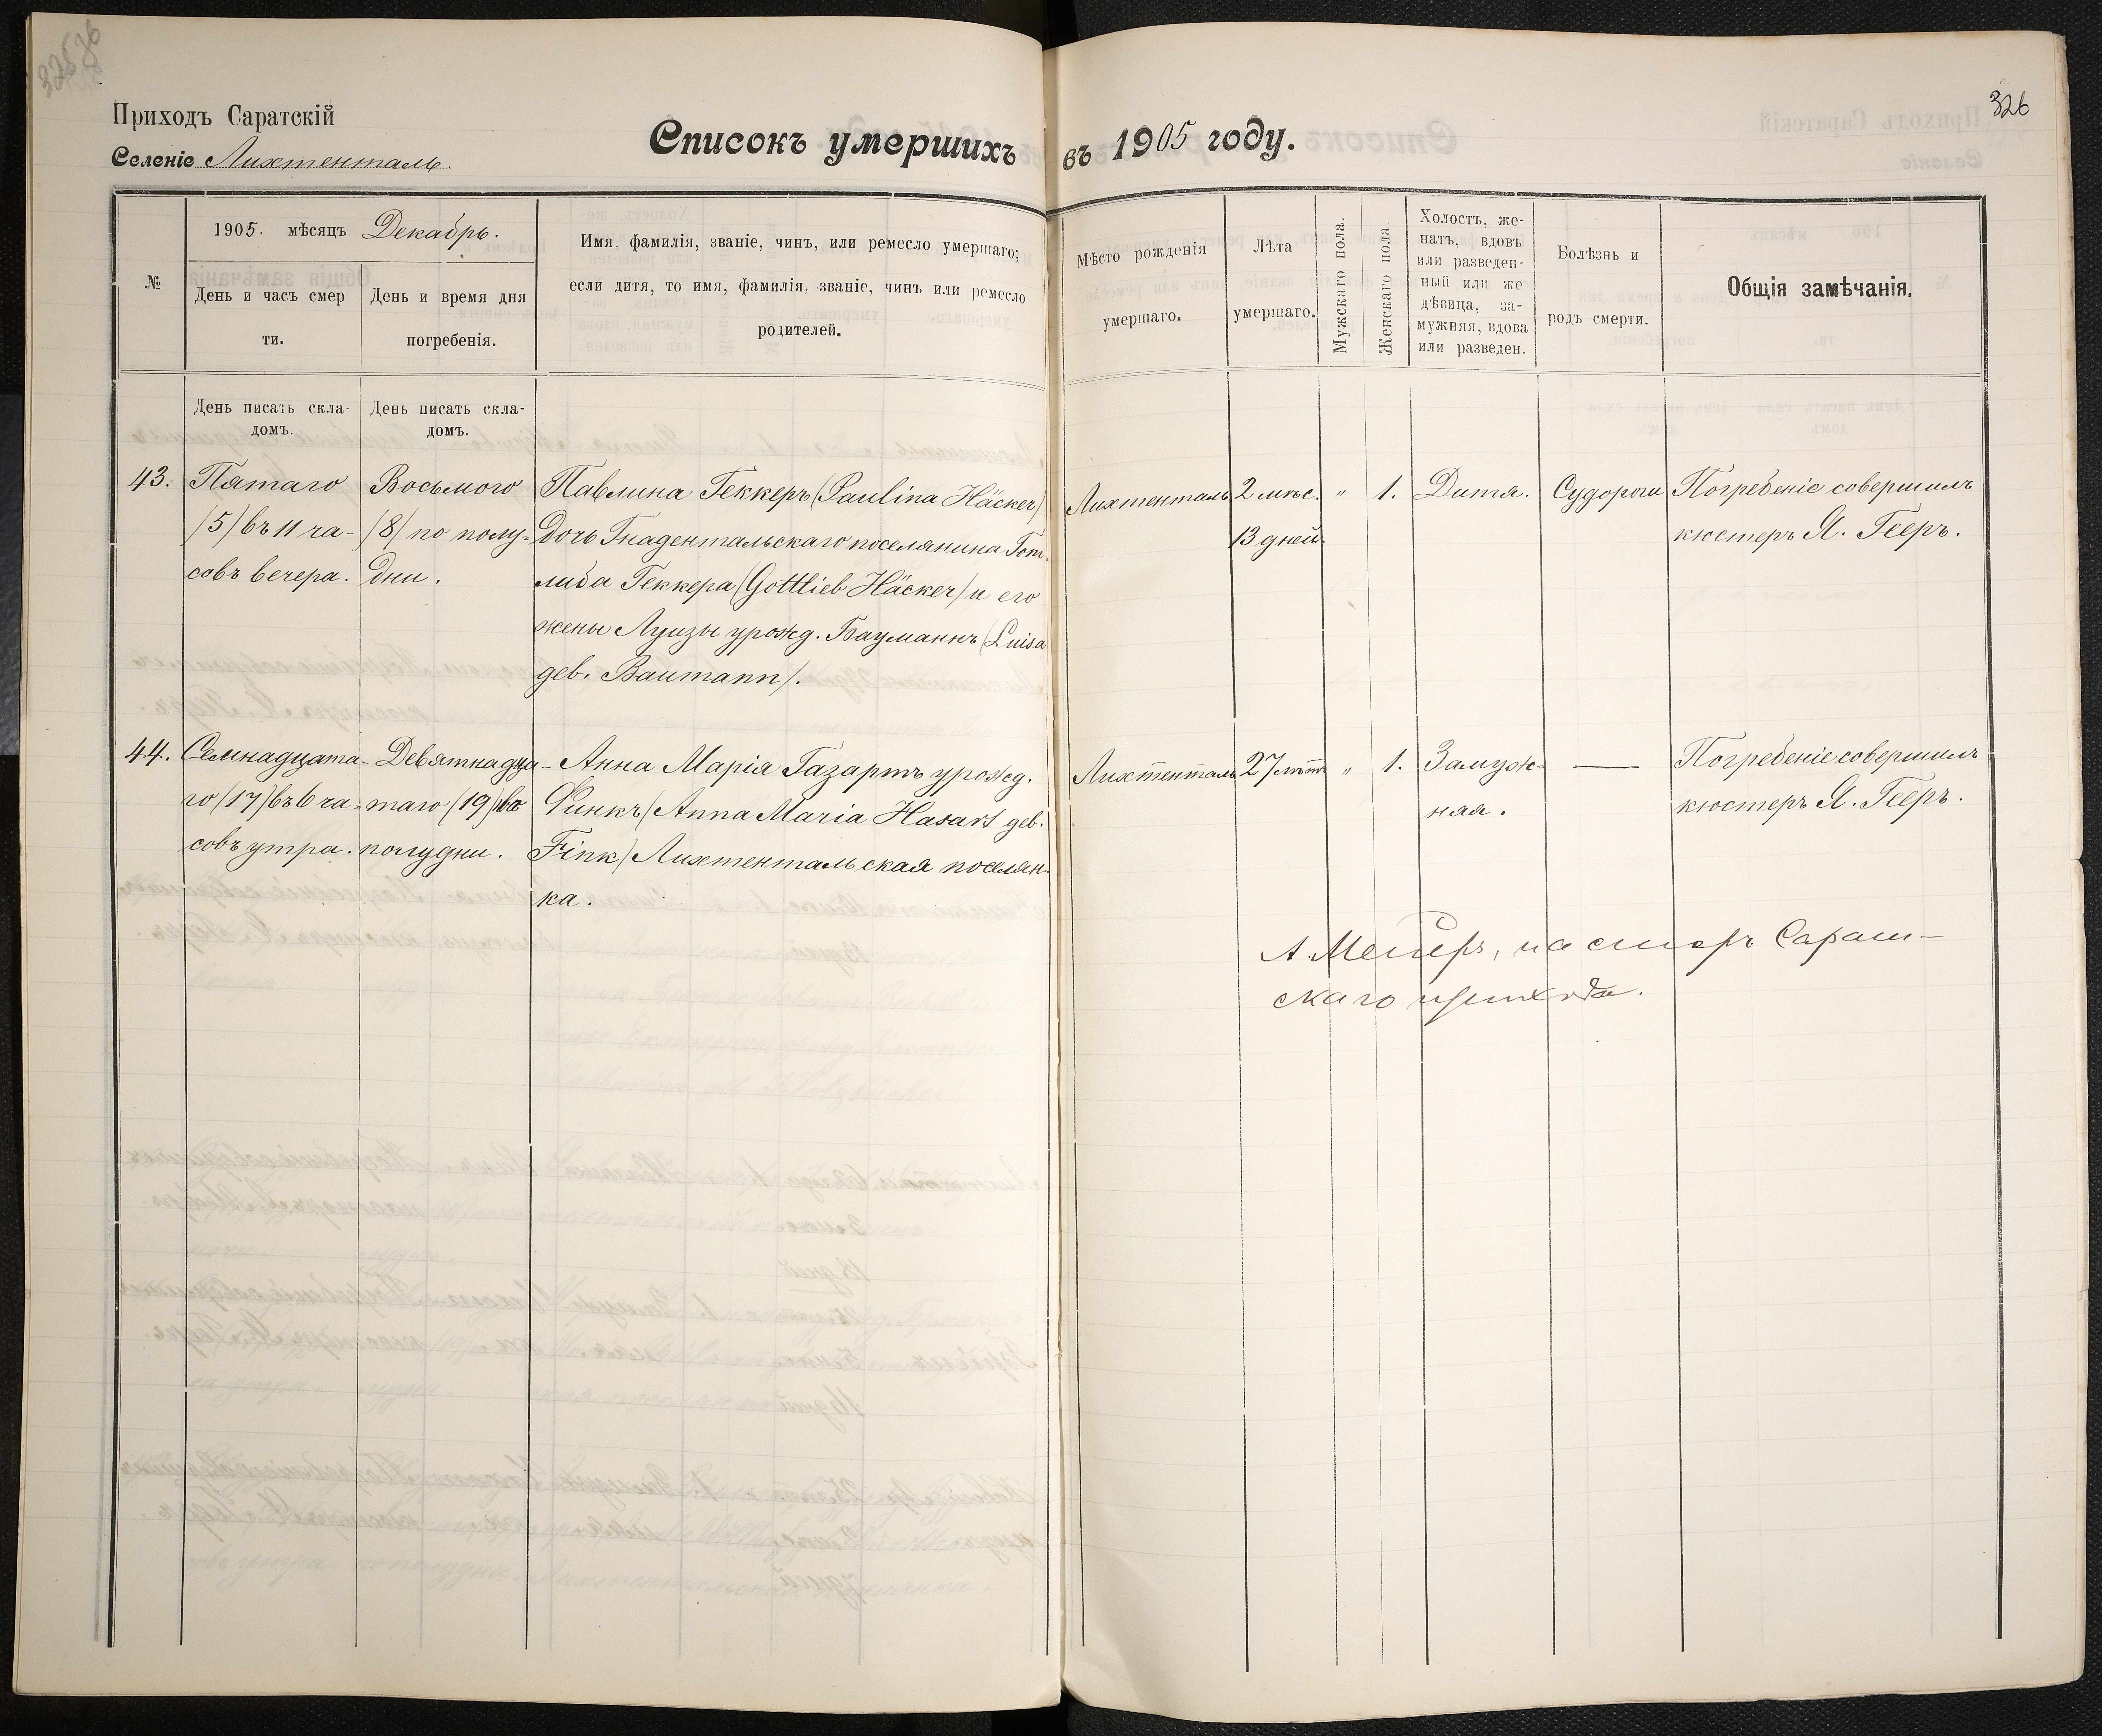 326
Приходъ Саратскій
Селеніе Лихтенталь.
Списокъ умершихъ въ 1905 году.
№
1905. мѣсяцъ Декабрь.
День и часъ смер
ти.
День и время дня
погребенія.
Имя, фамилія, званіе, чинъ, или ремесло умершаго;
если дитя, то имя, фамилія, званіе, чинъ или ремесло
родителей.
Мѣсто рожденія
умершаго.
Лѣта
умершаго.
Мужскаго пола.
Женскаго пола.
Холостъ, же-
натъ, вдовъ
или разведен-
ный или же
дѣвица, за-
мужняя, вдова
или разведен.
Болѣзнь и
родъ смерти.
Общія замѣчанія.
День писать скла-
домъ.
День писать скла-
домъ.
43.
Пятаго
/5/ въ 11 ча-
совъ вечера.
Восьмого
/8/ по полу-
дни.
Павлина Геккеръ (Paulina Häcker)
дочь Гнадентальскаго поселянина Гот
либа Геккера (Gottlieb Häcker) и его
жены Луизы урожд. Бауманнъ (Luisa
geb. Baumann).
Лихтенталь
2 мѣс.
13 дней.
"
1.
Дитя.
Судороги
Погребеніе совершилъ
кюстеръ Я. Гееръ.
44.
Семнадцата-
го (17) въ 6 ча-
совъ утра.
Девятнадца-
таго (19) въ
полудни.
Анна Марія Газартъ урожд.
Финкъ (Anna Maria Hasart geb.
Fink) Лихтентальская поселян-
ка.
Лихтенталь
27 лѣтъ
"
1.
Замуж-
няя.
—
Погребеніе совершилъ
кюстеръ Я. Гееръ.
А. Мейеръ, пасторъ Сарат-
скаго прихода.